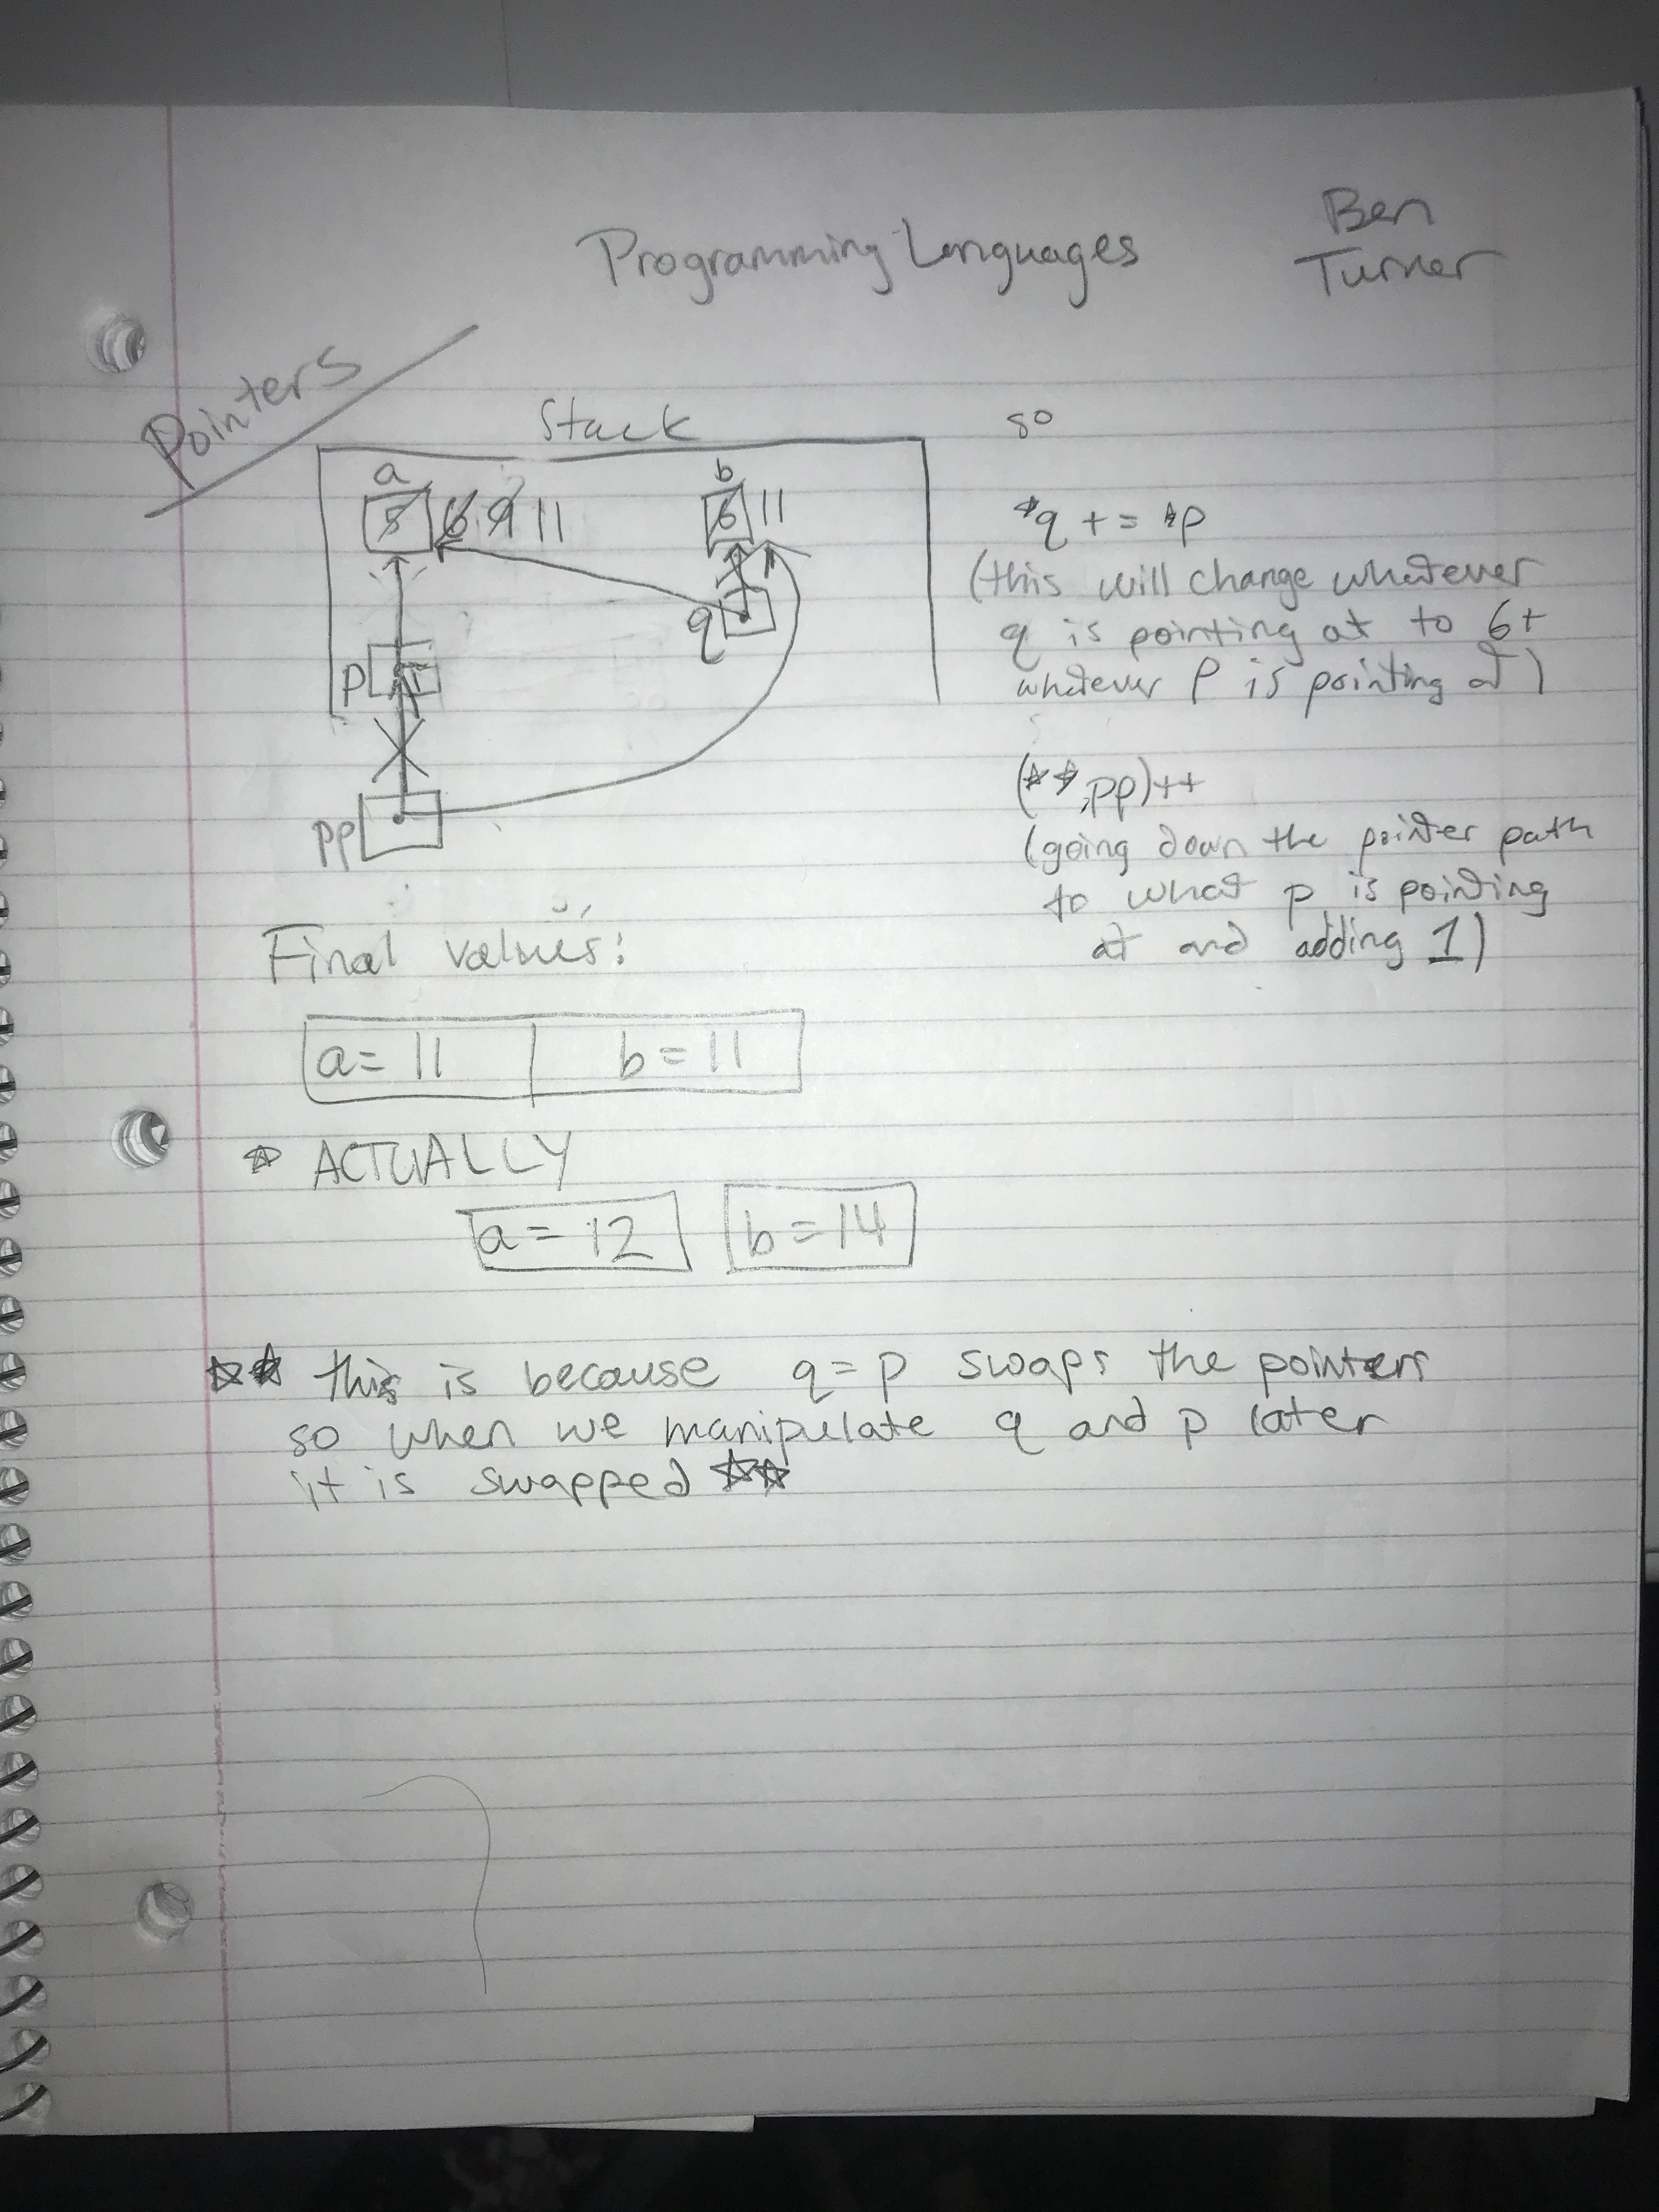 Programming Languages
Ben
Turner
Pointers
Stack
a
5 6 9 11
b
6 11
q
p
pp
so
*q += *p
(this will change whatever
q is pointing at to 6+
whatever p is pointing at)
(**pp)++
(going down the pointer path
to what p is pointing
at and adding 1)
Final values:
a= 11 | b= 11
* ACTUALLY
a = 12 b = 14
** this is because q=p swaps the pointers
so when we manipulate q and p later
it is swapped **